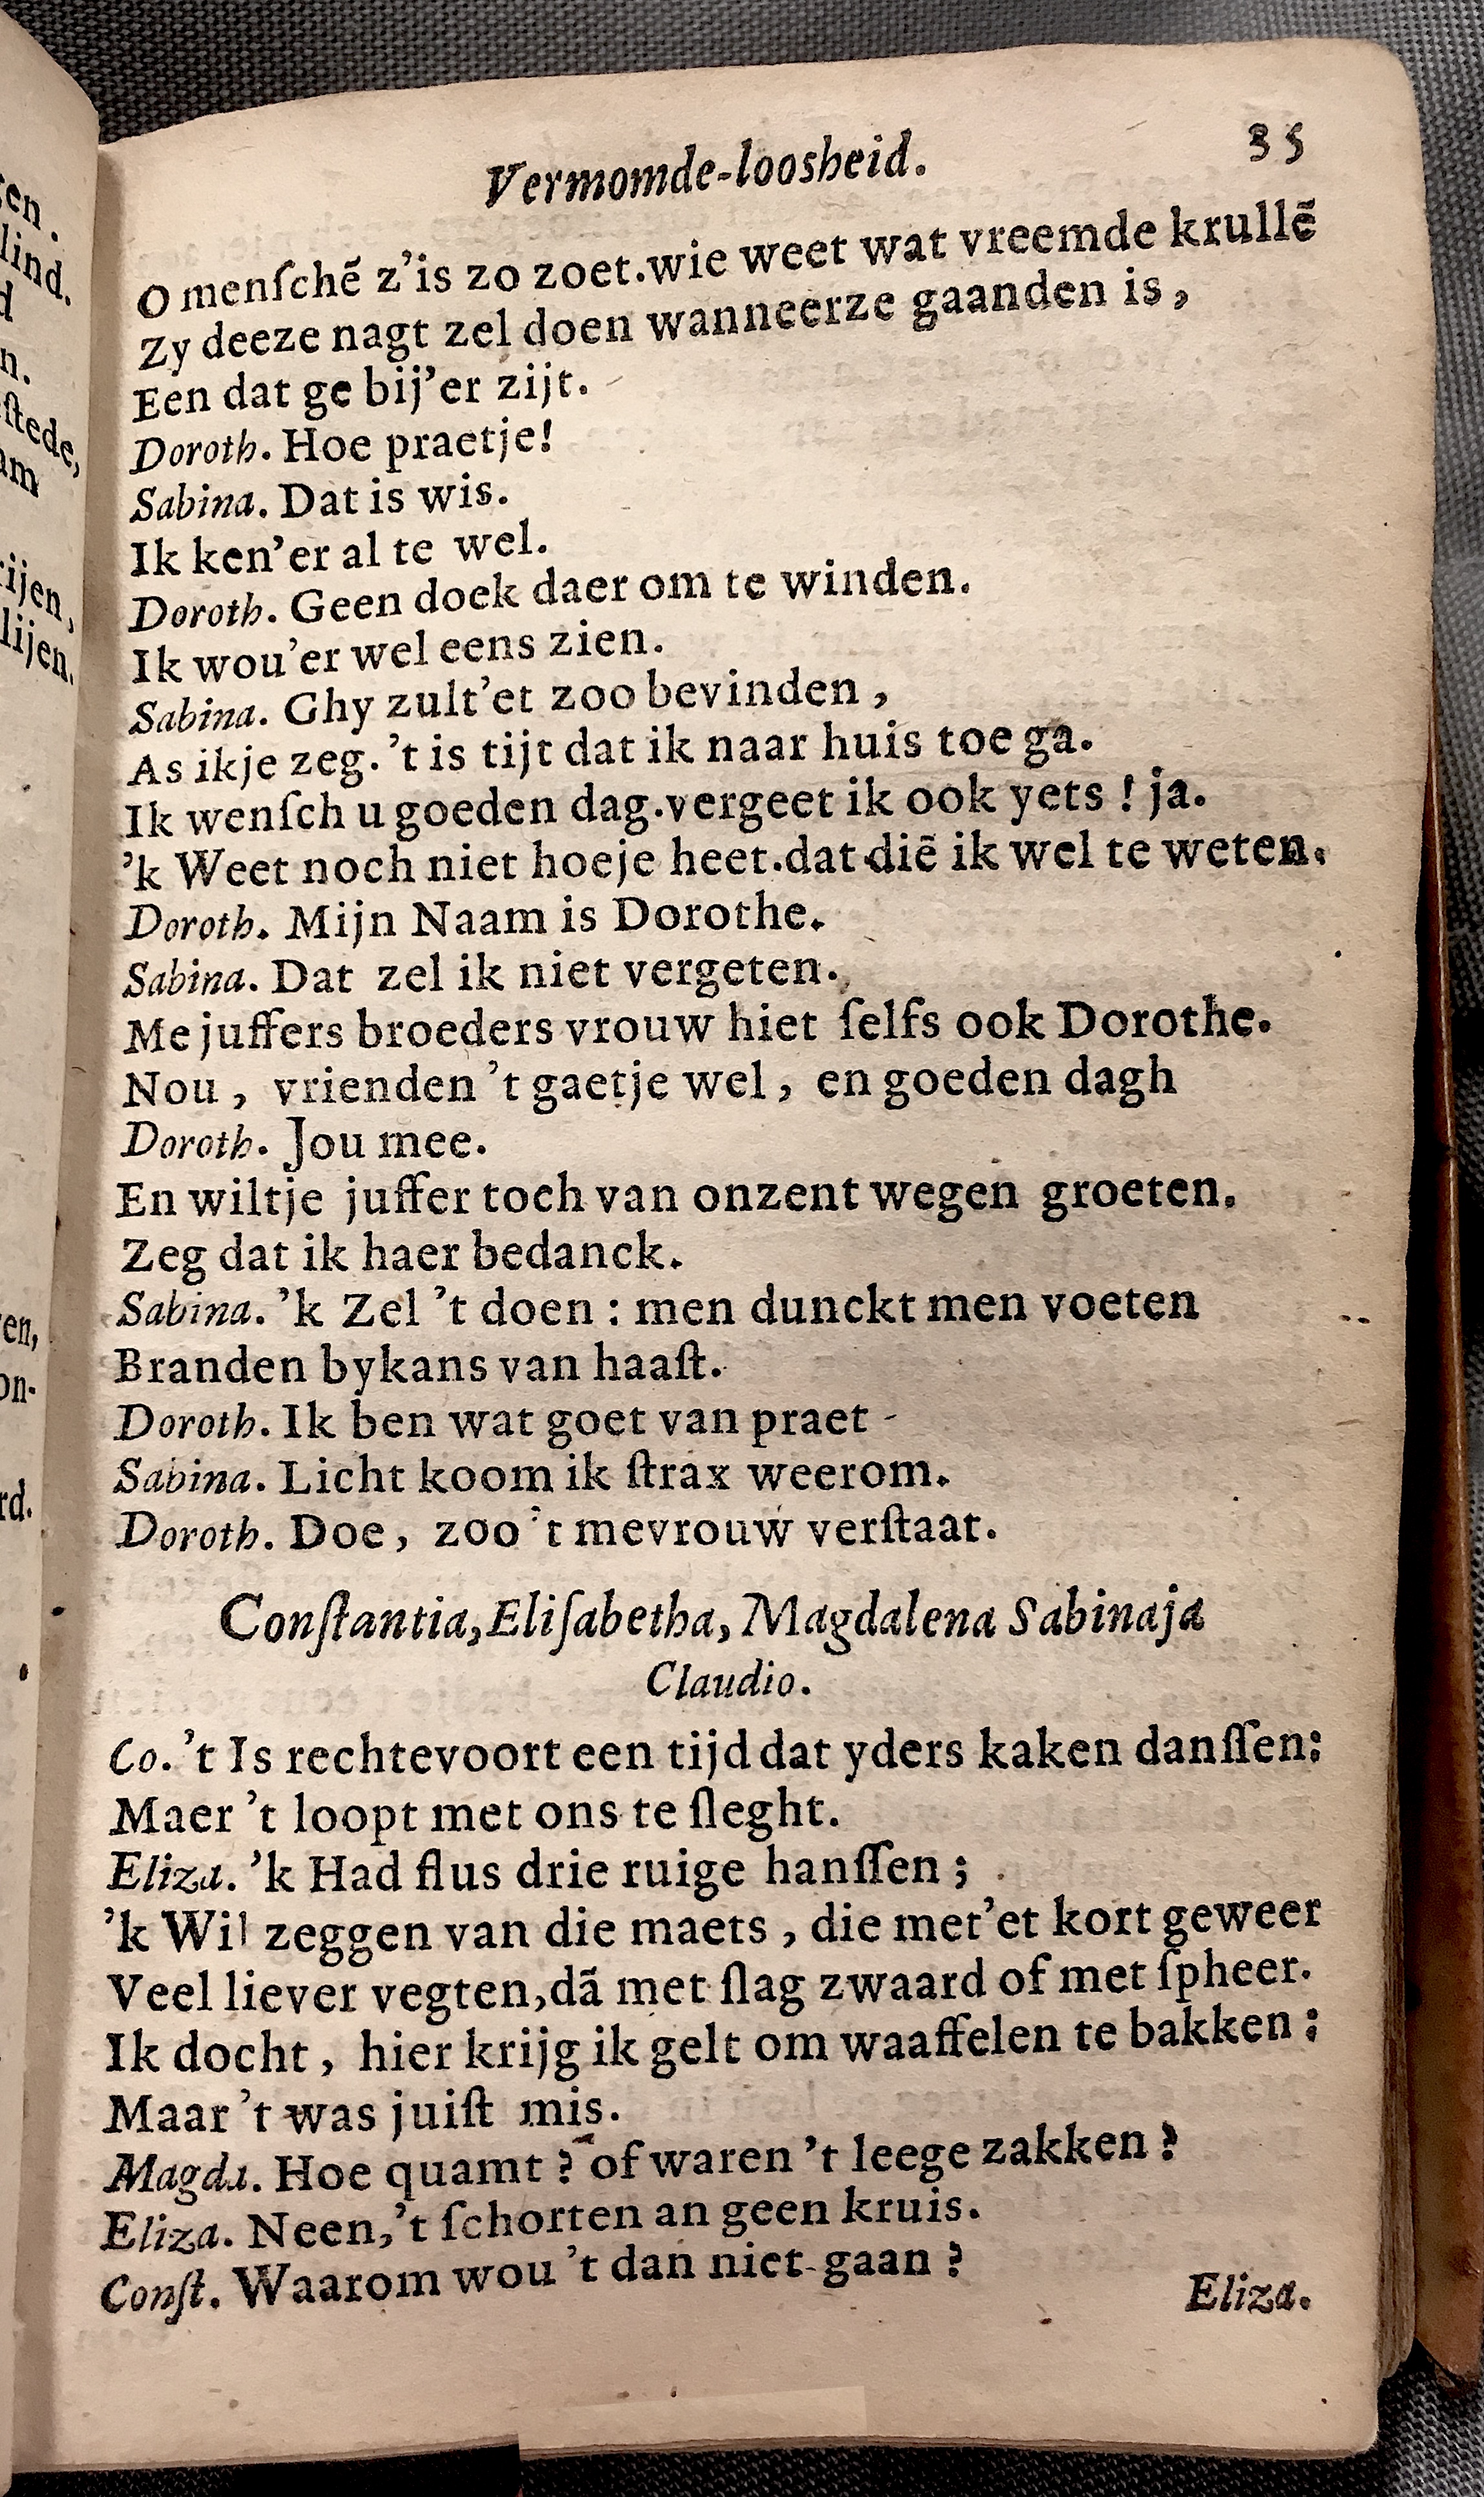 Vermomde-loosheid. 35
O menſchē z'is zo zoet.wie weet wat vreemde krullē
Zy deeze nagt zel doen wanneerze gaanden is,
Een dat ge bij'er zijt.
Doroth. Hoe praetje!
Sabina. Dat is wis.
Ik ken'er al te wel.
Doroth. Geen doek daer om te winden.
Ik wou'er wel eens zien.
Sabina. Ghy zult'et zoo bevinden,
As ikje zeg. 't is tijt dat ik naar huis toe ga.
Ik wenſch u goeden dag.vergeet ik ook yets! ja.
'k Weet noch niet hoeje heet.dat diē ik wel te weten.
Doroth. Mijn Naam is Dorothe.
Sabina. Dat zel ik niet vergeten.
Me juffers broeders vrouw hiet ſelfs ook Dorothe.
Nou, vrienden 't gaetje wel, en goeden dagh
Doroth. Jou mee.
En wiltje juffer toch van onzent wegen groeten.
Zeg dat ik haer bedanck.
Sabina. 'k Zel 't doen: men dunckt men voeten
Branden bykans van haaſt.
Doroth. Ik ben wat goet van praet -
Sabina. Licht koom ik ſtrax weerom.
Doroth. Doe, zoo 't mevrouw verſtaat.
Conſtantia, Eliſabetha, Magdalena Sabinaja
Claudio.
Co. 't Is rechtevoort een tijd dat yders kaken danſſen:
Maer 't loopt met ons te ſleght.
Eliza. 'k Had flus drie ruige hanſſen;
'k Wil zeggen van die maets, die met'et kort geweer
Veel liever vegten, dā met ſlag zwaard of met ſpheer.
Ik docht, hier krijg ik gelt om waaffelen te bakken:
Maar 't was juiſt mis.
Magda. Hoe quamt? of waren 't leege zakken?
Eliza. Neen, 't ſchorten an geen kruis.
Conſt. Waarom wou 't dan niet gaan?
Eliza.
en.
lind.
d
n.
ſtede,
am
ijen,
lijen.
en,
on-
rd.